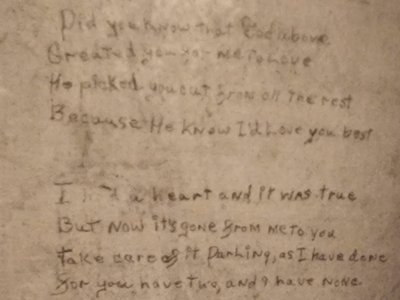 Did you know that God above
Created you for me to love
He picked you out from all the rest
Because He know I'd love you best
I had a heart and it was true
But now it's gone from me to you
Take care of it Darhing, as I have done
for you have two, and I have none.